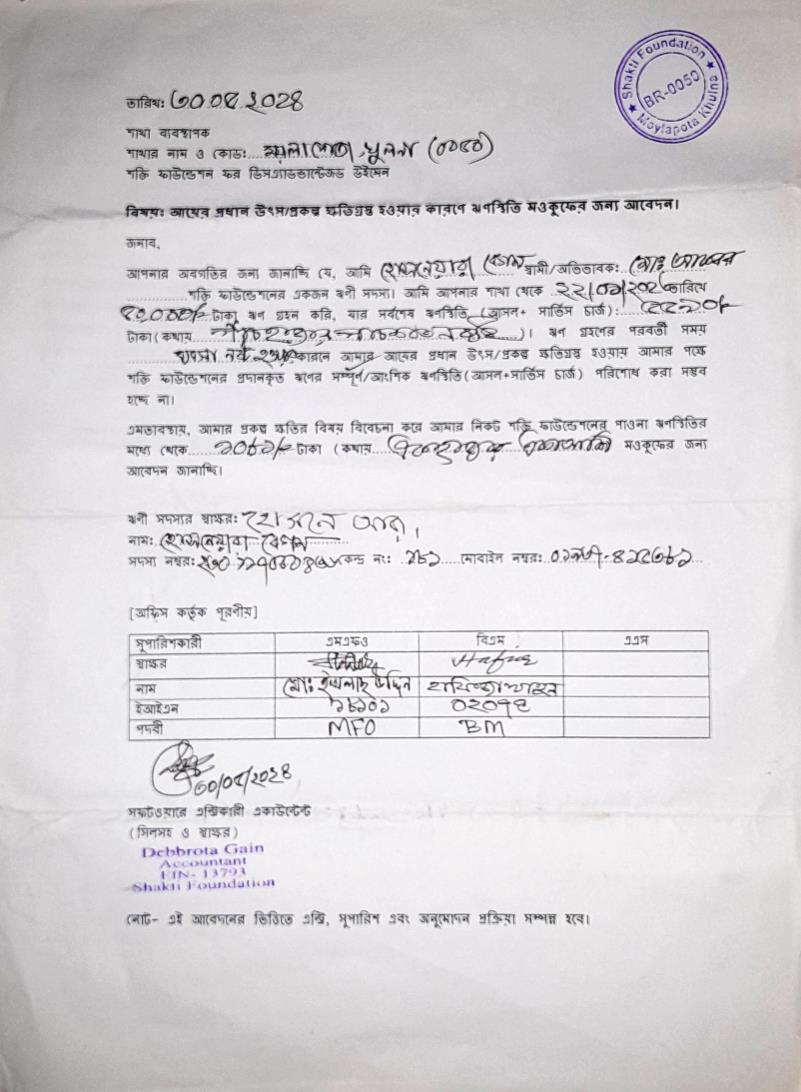 Shakti Foundation
BR-0050
Moylapota Khulna
তারিখঃ ৩০.০৫.২০২৪
শাখা ব্যবস্থাপক
শাখার নাম ও কোডঃ....ময়লাপোতা, খুলনা (০০৫০)
শক্তি ফাউন্ডেশন ফর ডিসএ্যাডভান্টেজড উইমেন
বিষয়ঃ আয়ের প্রধান উৎস/প্রকল্প ক্ষতিগ্রস্ত হওয়ার কারণে ঋণস্থিতি মওকুফের জন্য আবেদন।
জনাব,
আপনার অবগতির জন্য জানাচ্ছি যে, আমি হোসনেয়ারা বেগম স্বামী/অভিভাবকঃ মোঃ
শক্তি ফাউন্ডেশনের একজন ঋনী সদস্য। আমি আপনার শাখা থেকে তারিখে
টাকা ঋণ গ্রহন করি, যার সর্বশেষ ঋণস্থিতি (আসল+ সার্ভিস চার্জ):
টাকা (কথায় )। ঋণ গ্রহণের পরবর্তী সময়
ব্যবসা নষ্ট হওয়ার কারনে আমার আয়ের প্রধান উৎস/প্রকল্প ক্ষতিগ্রস্ত হওয়ায় আমার পক্ষে
শক্তি ফাউন্ডেশনের প্রদানকৃত ঋণের সম্পূর্ণ/আংশিক ঋণস্থিতি(আসল+সার্ভিস চার্জ) পরিশোধ করা সম্ভব
হচ্ছে না।
এমতাবস্থায়, আমার প্রকল্প ক্ষতির বিষয় বিবেচনা করে আমার নিকট শক্তি ফাউন্ডেশনের পাওনা ঋণস্থিতির
মধ্যে থেকে টাকা (কথায় মওকুফের জন্য
আবেদন জানাচ্ছি।
ঋনী সদস্যের স্বাক্ষরঃ হোসনে আরা
নামঃ হোসনেয়ারা বেগম
সদস্য নম্বরঃ কেন্দ্র নং: মোবাইল নম্বরঃ
[অফিস কর্তৃক পূরণীয়]
সুপারিশকারী এমএফও বিএম এএম
স্বাক্ষর Hafiz
নাম মোঃ উদ্দিন
ইআইএন ১৮১০১ ০২০৭৫
পদবী MFO BM
৩০/০৫/২০২৪
সফটওয়্যারে এন্ট্রিকারী একাউন্টেন্ট
(সিলসহ ও স্বাক্ষর)
Debbrota Gain
Accountant
EIN- 13793
Shakti Foundation
নোট- এই আবেদনের ভিত্তিতে এন্ট্রি, সুপারিশ এবং অনুমোদন প্রক্রিয়া সম্পন্ন হবে।